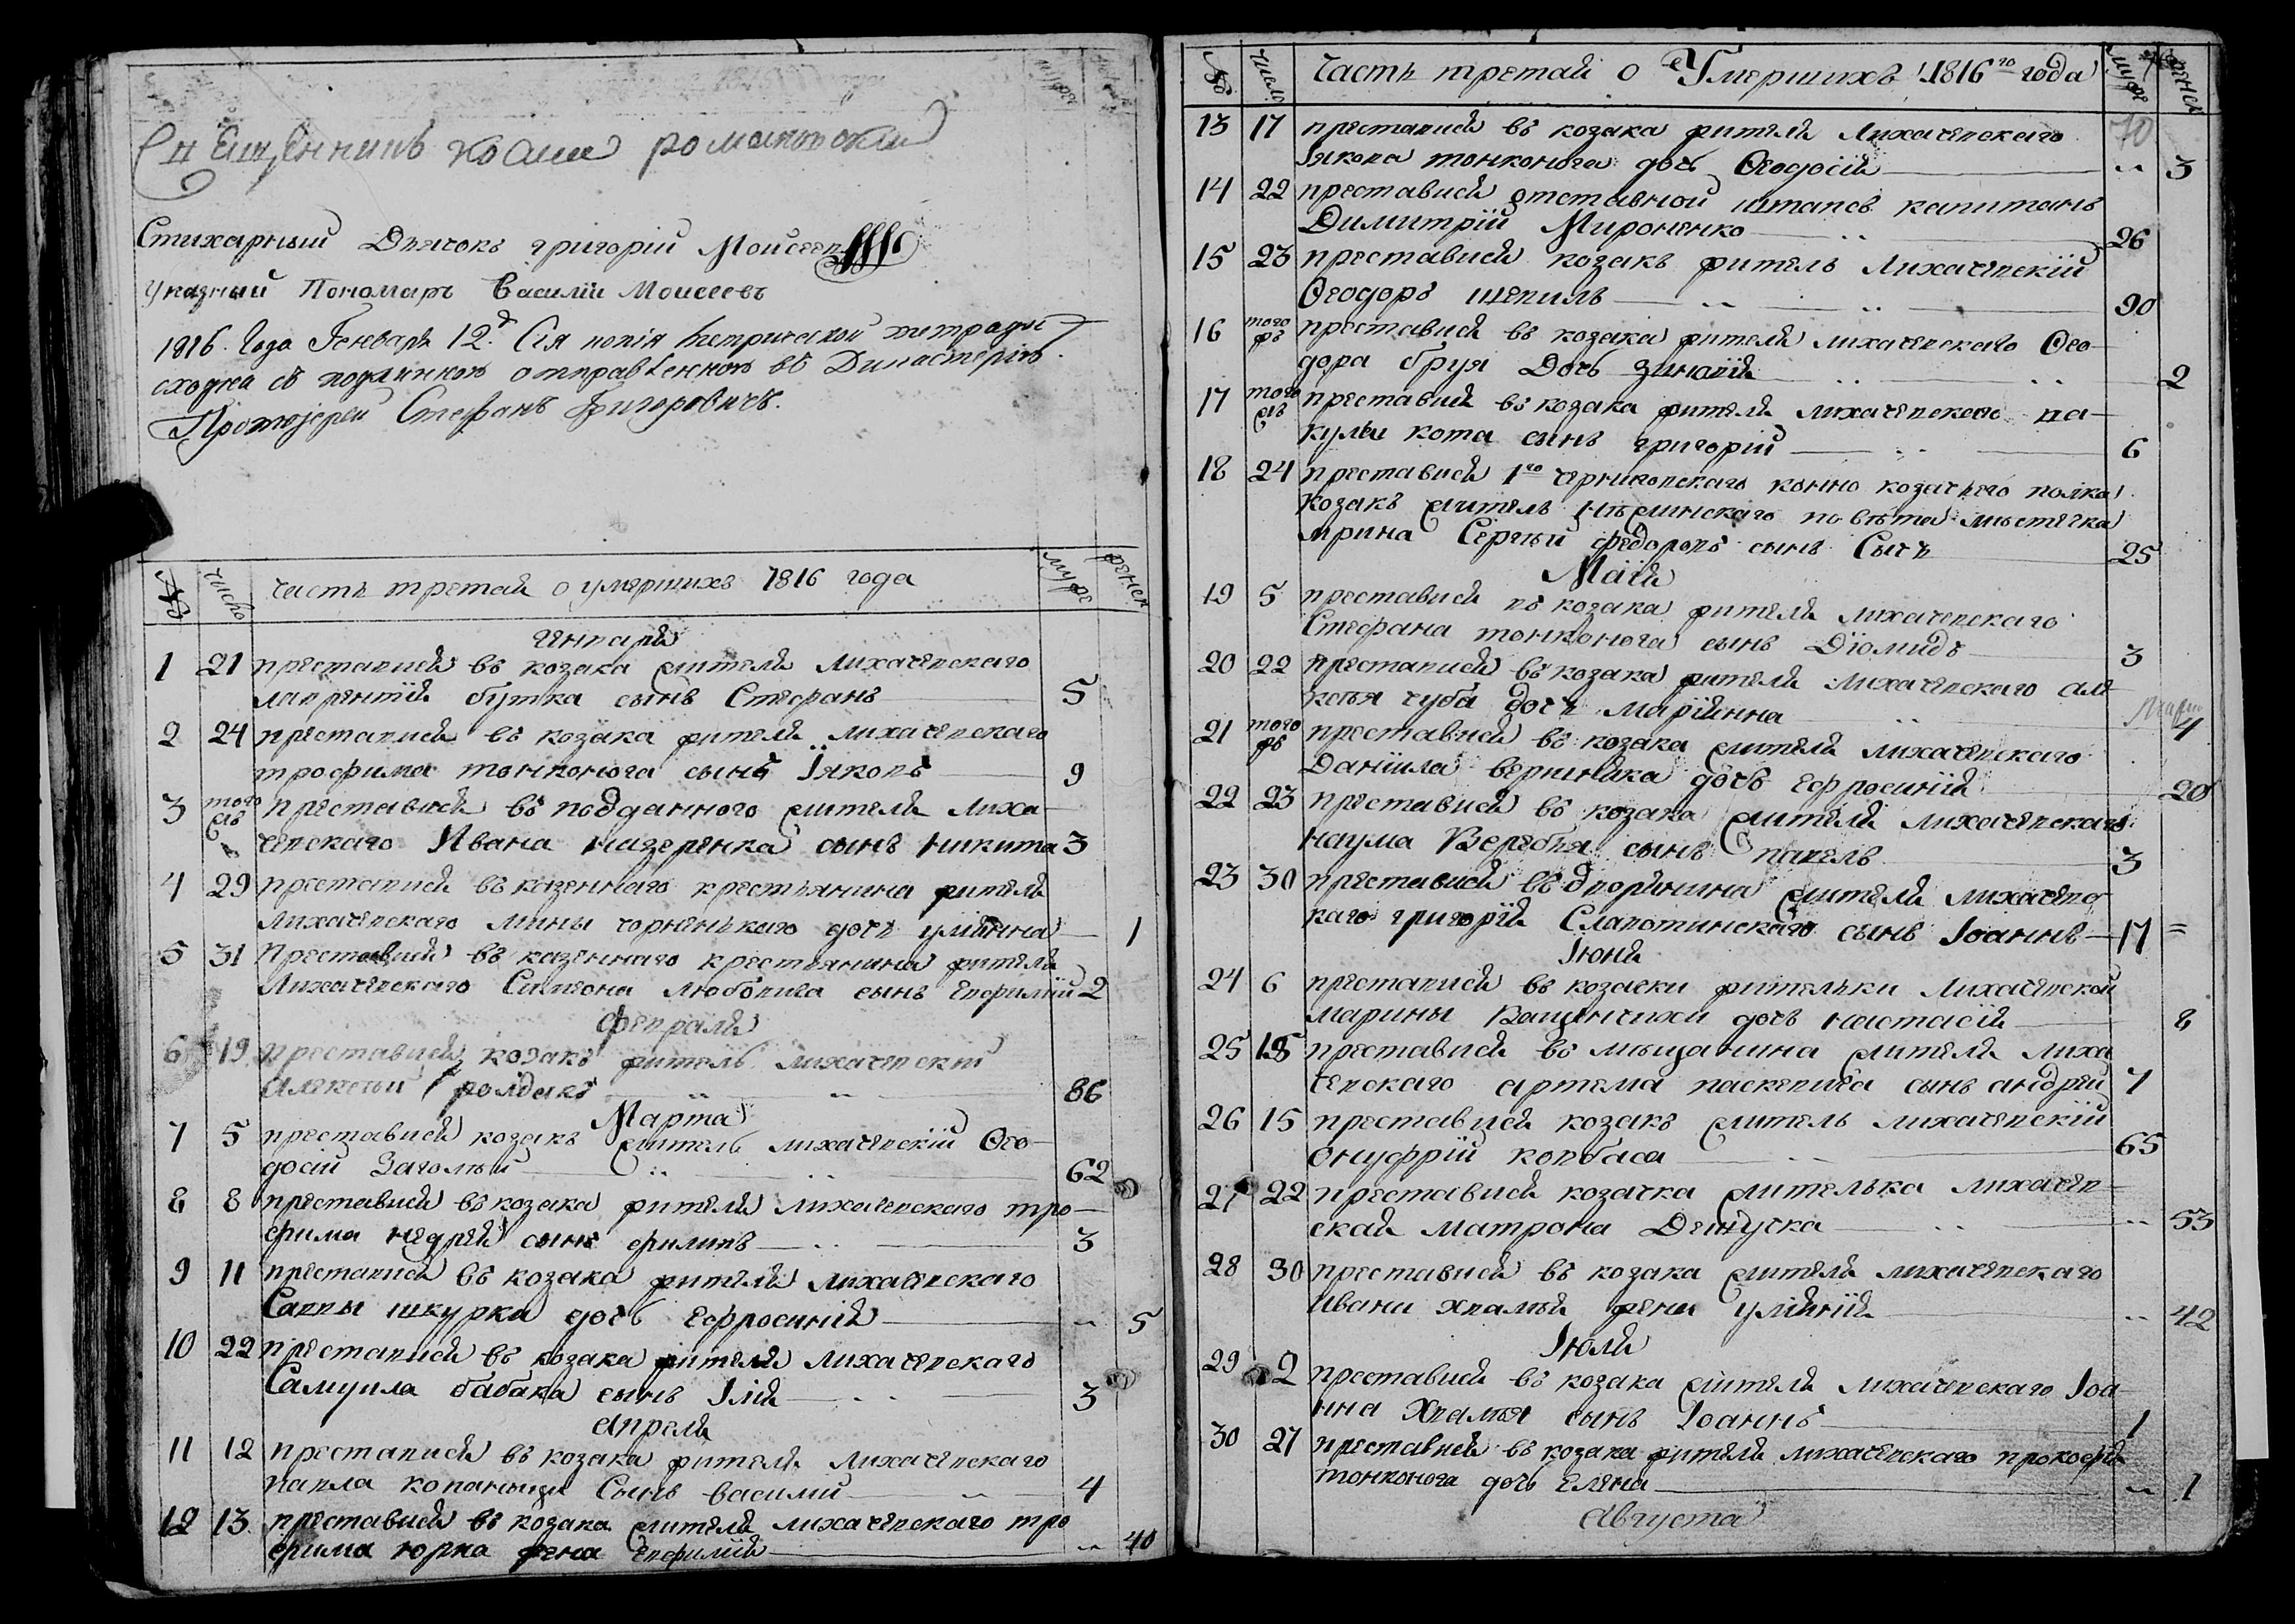 Священникъ Романовски
Стихарный Дьячокъ григорій Моисеевъ
указный Пономаръ Василій Моисеевъ
1816. Года Генваря 12.д Сія копія метрической тетради
сходна съ подлинною отправленною въ Дикастерію.
Протоіерей Стефанъ Григоровичъ.
№ число часть третая о умершихъ 1816 года муже женск
генваря
1 21 преставися въ козака жителя лихачевскаго
лаврентія бутка сынъ Стефанъ 5
2 24 преставися въ козака жителя лихачевскаго
трофима тонконога сынъ Іяковъ 9
3 того жъ преставися въ подданного жителя лиха-
чевскаго Ивана назеренка сынъ никита 3
4 29 преставися въ казеннаго крестьянина жителя
лихачевскаго мины чорненького дочь уліянна 1
5 31 Преставися въ казеннаго крестьянина жителя
Лихачевскаго Симеона любовича сынъ евфимій 2
февраля
6 19 преставися козакъ жителъ лихачевскій
алексей 86
Марта
7 5 преставися козакъ жителъ лихачевскій Ѳео-
досій Заголній 62
8 8 преставися въ козака жителя лихачевскаго тро-
фима недрея сынъ филипъ 3
9 11 преставися въ козака жителя лихачевскаго
Саввы шкурка дочь ефросинія 5
10 22 преставися въ козака жителя лихачевскаго
Самуила бабака сынъ Ілія 3
апреля
11 12 преставися въ козака жителя лихачевскаго
павла копаницы Сынъ василий 4
12 13 преставися въ козака жителя лихачевскаго тро
фима юрка жена евфимія 40
№ число часть третая о Умершихъ 1816го года муже женск
13 17 преставися въ козака жителя лихачевскаго 70
Іякова тонконога дочь Ѳеодосія 3
14 22 преставися отставной штапсъ капитанъ
Димитрій Мироненко 26
15 23 преставися козакъ жителъ лихачевскій
Ѳеодоръ щепилъ 90
16 того жъ преставися въ козака жителя лихачевскаго Ѳео-
дора бруя Дочь зиновія 2
17 того жъ преставися въ козака жителя лихачевского ва-
кулы кота сынъ григорій 6
18 24 преставися 1го черниговскаго конно козачьего полка
козакъ жителъ нежинскаго повѣта мѣстечка
мрина Сергѣй федоровъ сынъ Сычъ 25
Маія
19 5 преставися въ козака жителя лихачевскаго
Стефана тонконога сынъ Діомидъ 3
20 22 преставися въ козака жителя лихачевскаго але
ксѣя чуба дочь маріянна 4
21 того жъ преставися въ козака жителя лихачевскаго
Даніила дочь ефросинія 20
22 23 преставися въ козака жителя лихачевскаго
наума Веребья сынъ павелъ 3
23 30 преставися въ дворянина жителя лихачевс
каго григорія Слапотинскаго сынъ Іоаннъ 17
Іюня
24 6 преставися въ козачки жителъки лихачевской
марины Ващенчихи дочь настасія 8
25 15 преставися въ мѣщанина жителя лиха
чевскаго артема паскевича сынъ андрей 7
26 15 преставися козакъ жителъ лихачевскій
Онуфрій ковбаса 65
27 22 преставися козачка жителька лихачев-
ская матрона Дешучка 53
28 30 преставися въ козака жителя лихачевскаго
ивана хвамѣя жена уліянія 42
Іюля
29 2 преставися въ козака жителя лихачевскаго Іоа
нна Хвамѣя сынъ Іоаннъ 1
30 27 преставися въ козака жителя лихачевскаго прокофія
тонконога дочь елена 1
Августа